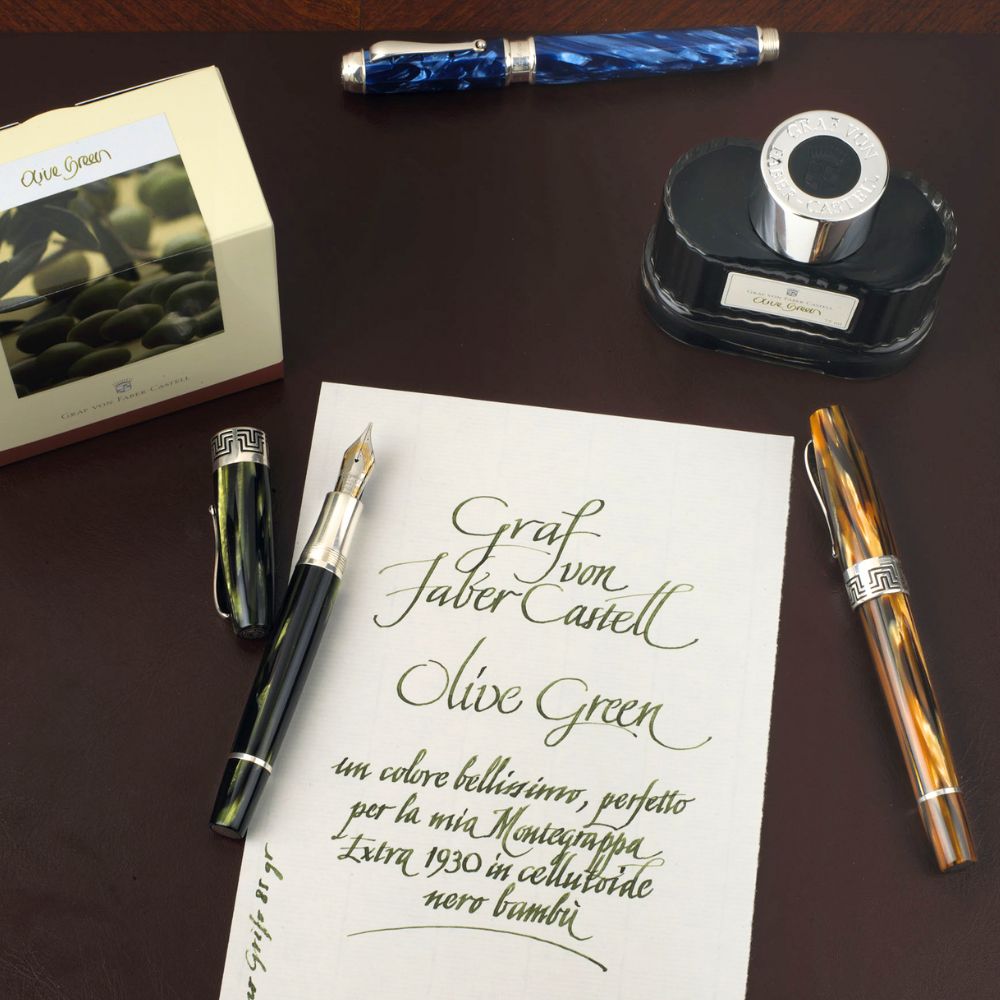 Olive Green
GRAF VON FABER CASTELL
GRAF VON
FABER-CASTELL
GRAF VON FABER CASTELL
Olive Green
Graf
von
Faber Castell
Olive Green
un colore bellissimo, perfetto
per la mia Montegrappa
Extra 1930 in celluloide
nero bambù
85 gr